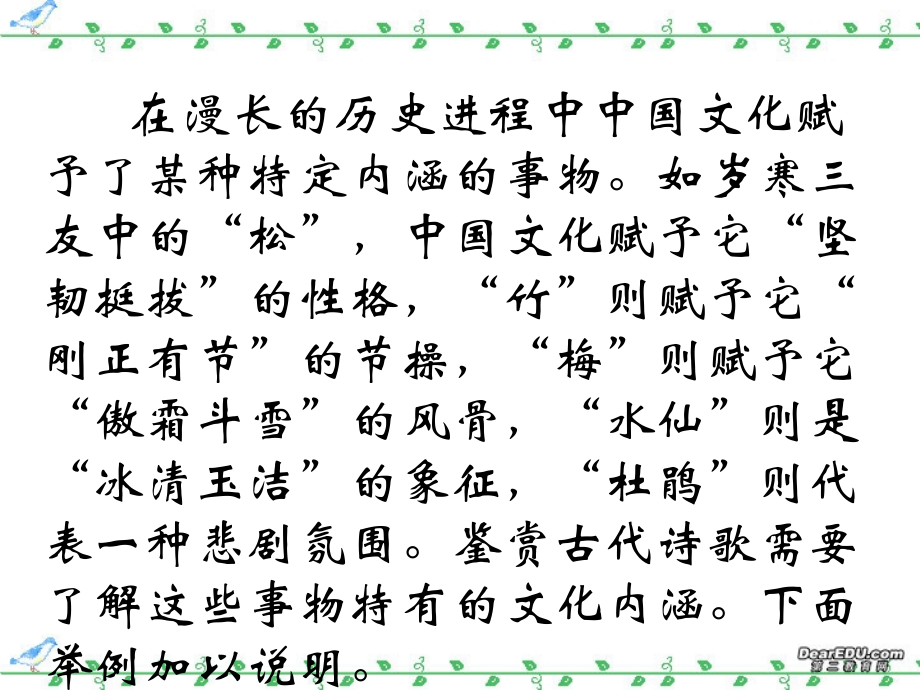 在漫长的历史进程中中国文化赋
予了某种特定内涵的事物。如岁寒三
友中的“松”，中国文化赋予它“坚
韧挺拔”的性格，“竹”则赋予它“
刚正有节”的节操，“梅”则赋予它
“傲霜斗雪”的风骨，“水仙”则是
“冰清玉洁”的象征，“杜鹃”则代
表一种悲剧氛围。鉴赏古代诗歌需要
了解这些事物特有的文化内涵。下面
举例加以说明。
DearEDU.com
第二教育网